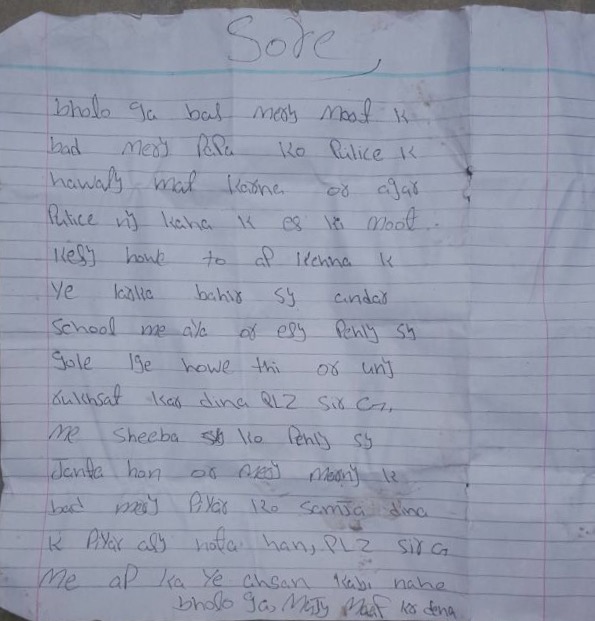 Sore,
bholo ga bas mery moot k
bad mery PaPa ko Pulice k
hawaly mat karna or agar
Pulice ny kaha k es ki moot
kesy howe to aP kehna k
ye larka bahir sy andar
School me aya or esy Pehly sy
gole lge howe thi or unj
rukhsat kar dina PLZ sir G,
me sheeba ko Pehly sy
Janta hon or mery marny k
bad mery Piyar ko samja dina
k Piyar asy hota han, PLZ sir G
Me aP ka ye ahsan kabi nahe
bholo ga, mujy maaf kr dena